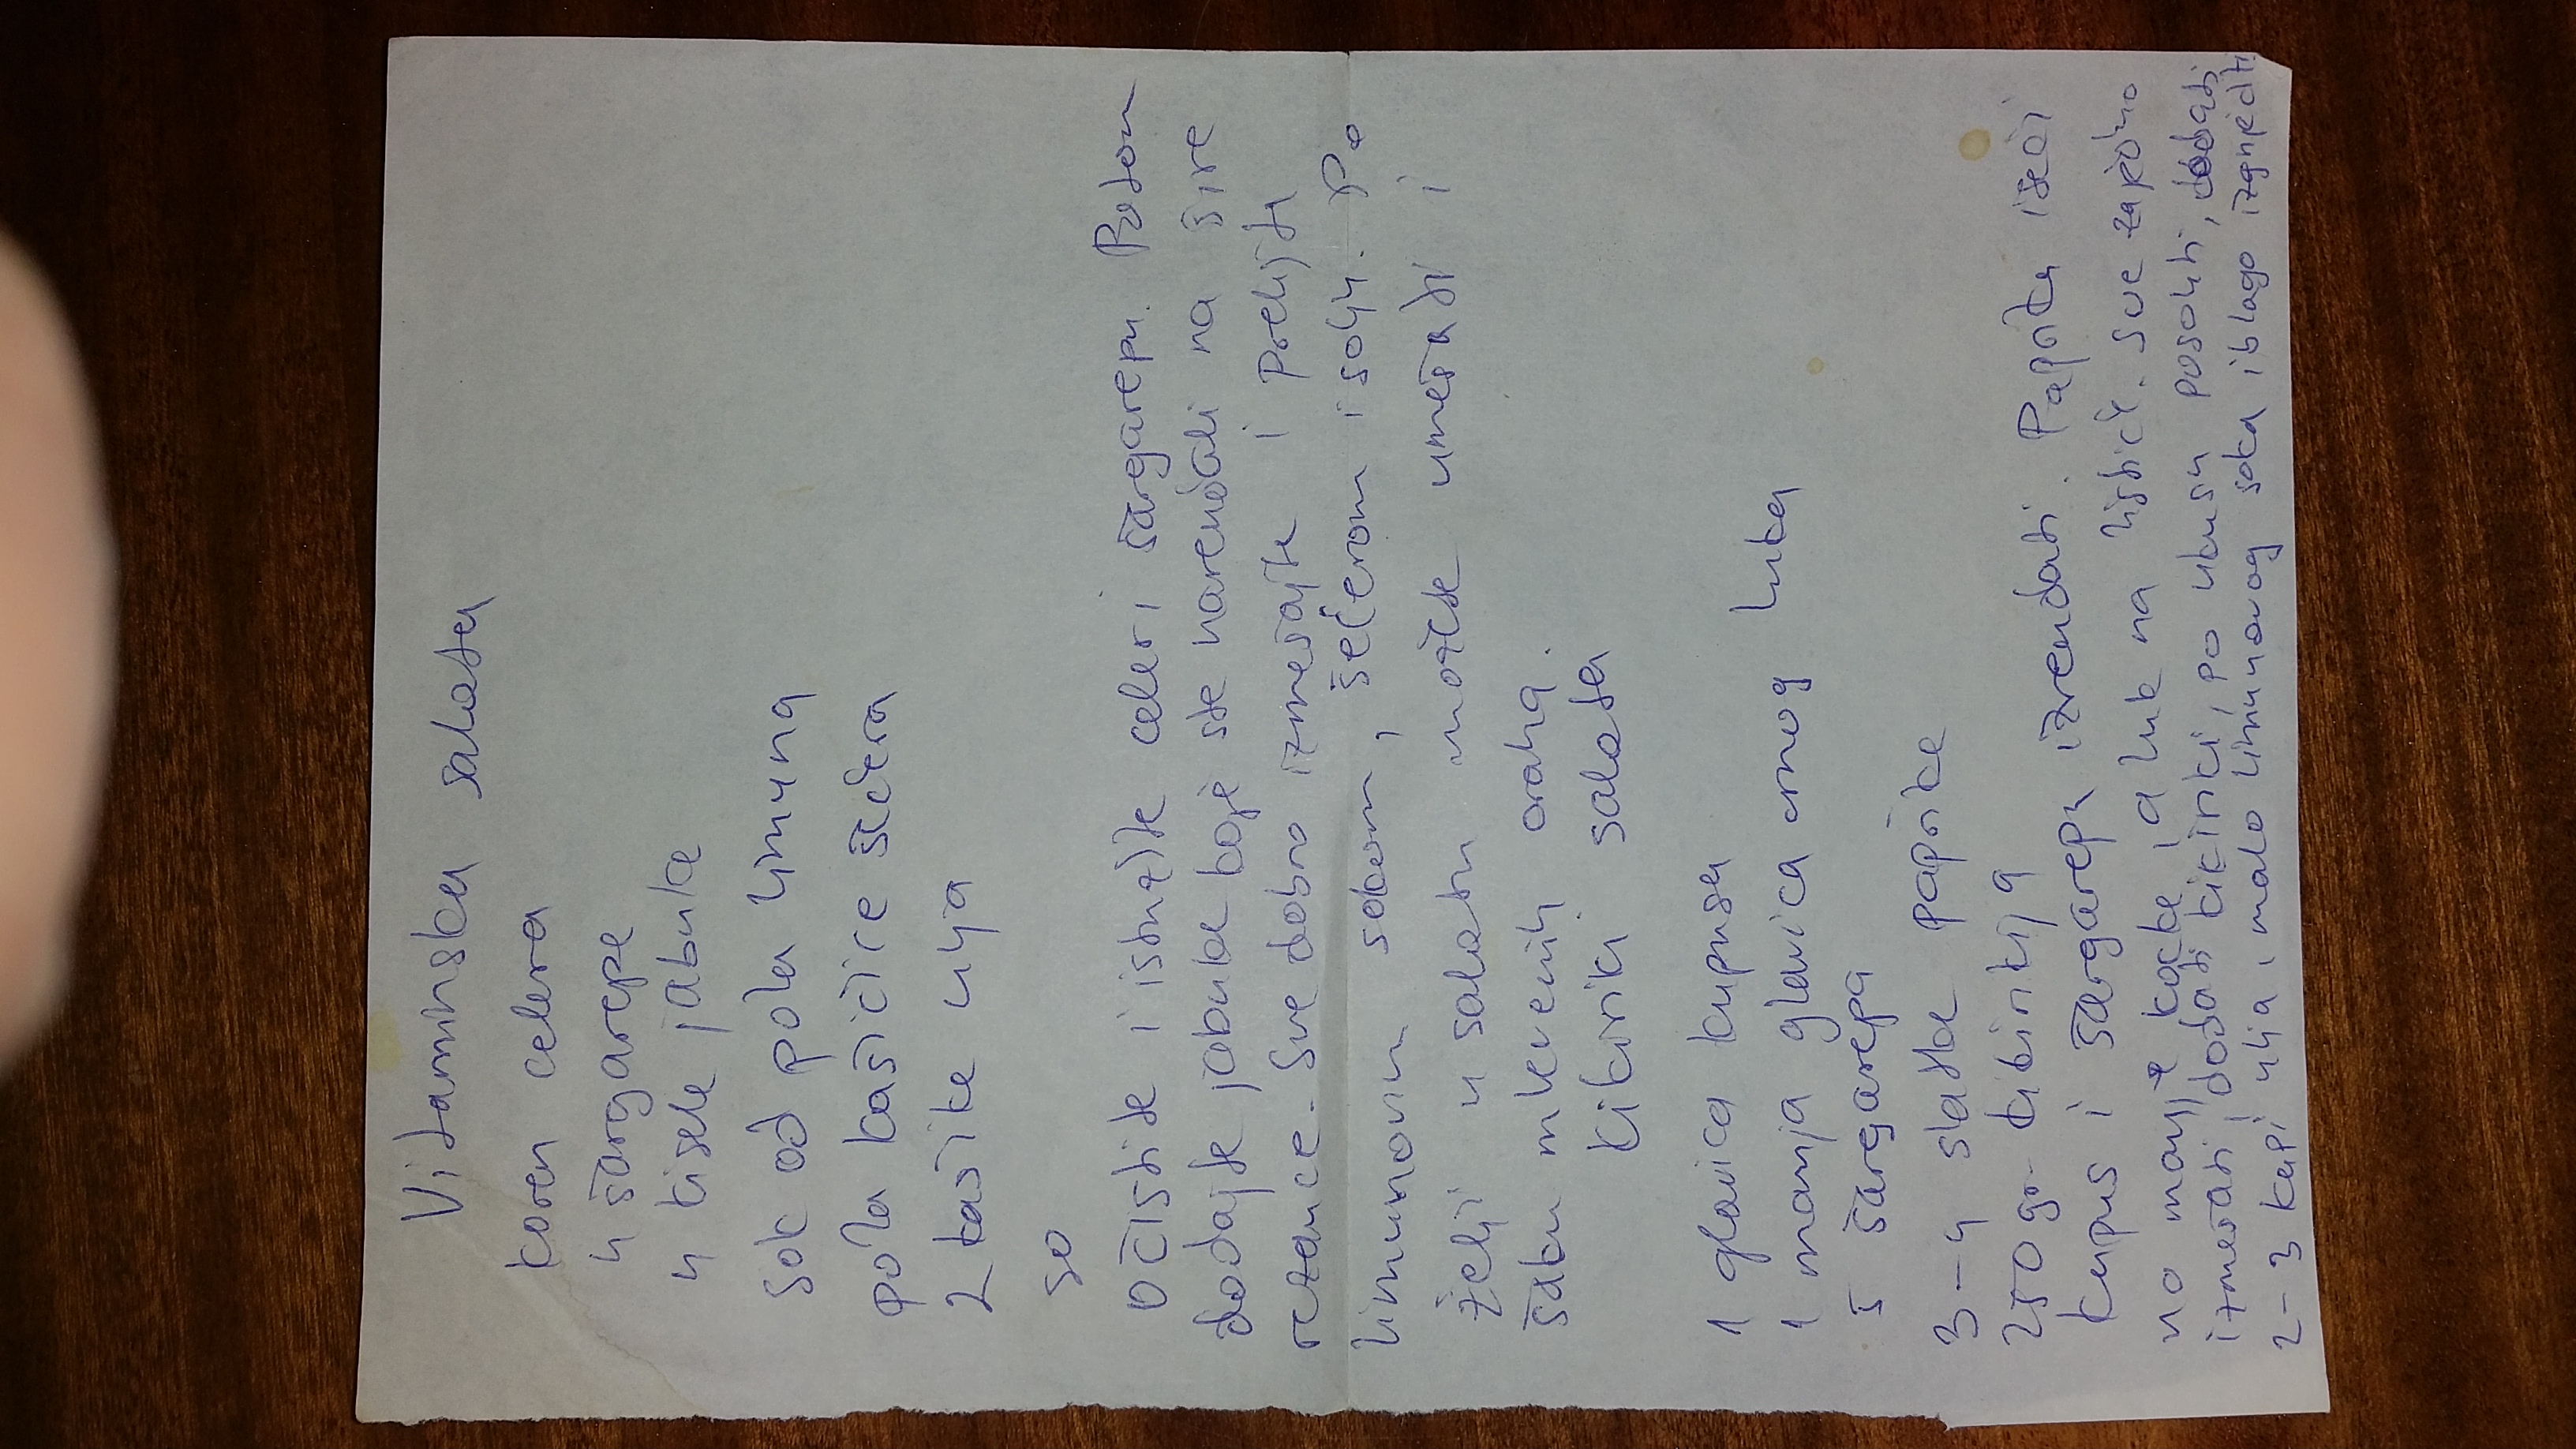 Vitaminska salata
koren celera
4 šargarepe
4 kisele jabuke
sok od pola limuna
pola kašičice šećera
2 kašike ulja
so
Očistite i istružite celer i šargarepu. Potom
dodajte jabuke koje ste narendali na šire
rezance. Sve dobro izmešajte i prelijte
limunovim sokom, šećerom i solju. Po
želji u salatu možete umešati i
šaku mlevenih oraha.
Kikiriki salata
1 glavica kupusa
1 manja glavica crnog luka
5 šargarepa
3-4 slatke paprike
250 gr. kikirikija
Kupus i šargarepu izrendati. Papriku iseći
na manje kocke, a luk na listiće. Sve zajedno
izmešati, dodati kikiriki, po ukusu posoliti, dodati
2-3 kapi ulja, malo limunovog soka i blago izgnječiti